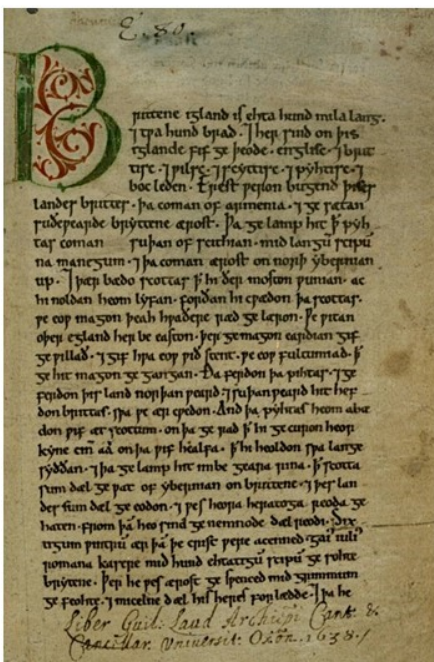 E. 80.
Brittene igland is ehta hund mila lang.
⁊ tƿa hund brad. ⁊ her sind on þis
iglande fif ge þeode. englisc. ⁊ brit
tisc. ⁊ ƿilsc. ⁊ scyttisc. ⁊ pyhtisc. ⁊
boc leden. Erest ƿeron bugend þises
landes brittes. þa coman of armenia. ⁊ ge sætan
suðeƿearde bryttene ærost. Þa ge lamp hit ꝥ pyh
tas coman suþan of scithian. mid langū scipū
na manegum. ⁊ þa coman ærost on norþ ybernian
up. ⁊ þær bædo scottas ꝥ hi ðer moston ƿunian. ac
hi noldan heom lyfan. forðan hi cƿædon þa scottas.
ƿe eoƿ magon þeah hƿaðere ræd ge læron. Ƿe ƿitan
oþer egland her be easton. þer ge magon eardian gif
ge ƿillað. ⁊ gif hƿa eoƿ ƿið stent. ƿe eoƿ fultumiað. ꝥ
ge hit magon ge gangan. Ða ferdon þa pihtas. ⁊ ge
ferdon þis land norþan ƿeard. ⁊ suþan ƿeard hit hef
don brittas. sƿa ƿe ær cƿedon. And þa pyhtas heom abæ
don ƿif æt scottum. on þa ge rad ꝥ hi ge curon heor
kyne cīn aá on þa ƿif healfa. ꝥ hi heoldon sƿa lange
syððan. ⁊ þa ge lamp hit imbe geara rina. ꝥ scotta
sum dæl ge ƿat of ybernian on brittene. ⁊ þes lan
des sum dæl ge eodon. ⁊ ƿes heora heratoga reoda ge
haten. from þā heo sind ge nemnode dæl reodi. Six
tigum ƿintrū ær þā þe crist ƿere acenned. gaiꝰ iuliꝰ
romana kasere mid hund ehtatigū scipū ge sohte
brytene. Þer he ƿes ærost ge sƿenced mid grimmum
ge feohte. ⁊ micelne dæl his heres forlædde. ⁊ þa he
Liber Guil: Laud Archiepi Cant. &
Cancellar. Universit: Oxon. 1638.